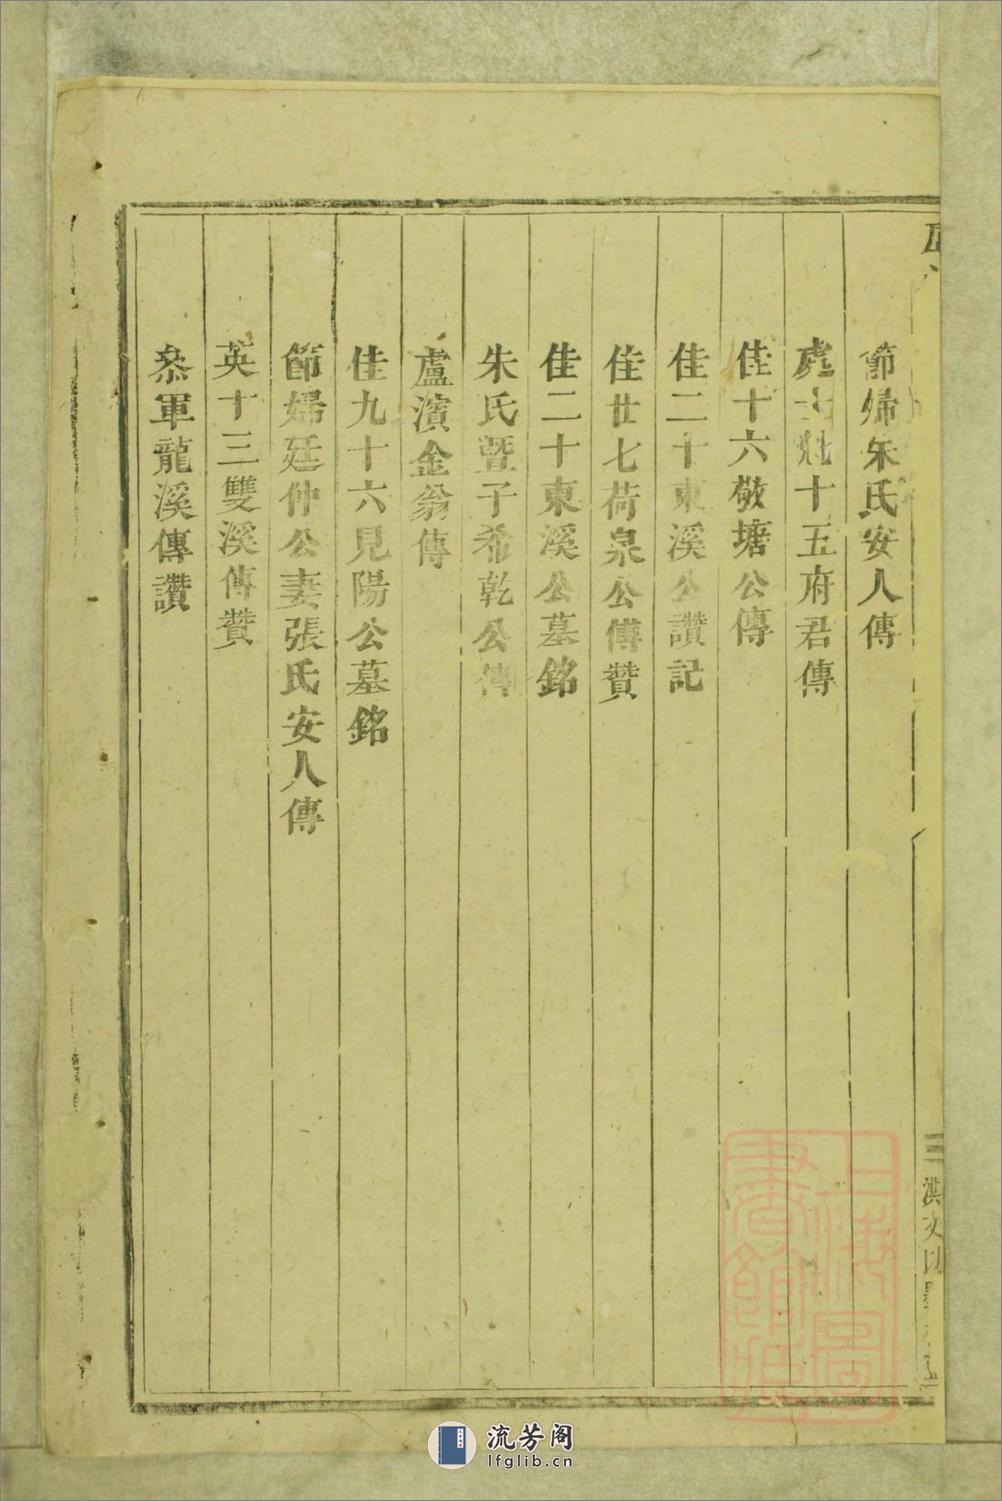 節婦朱氏安人傳
處士 十五府君傳
佳十六敬塘公傳
佳二十東溪公讚記
佳廿七荷泉公傅贊
佳二十東溪公墓銘
朱氏暨子希乾公傳
盧濱金翁傳
佳九十六見陽公墓銘
節婦廷仲公妻張氏安人傳
英十三雙溪傳贊
叅軍龍溪傳讚
三
上海圖書館藏
流芳阁
lfglib.cn